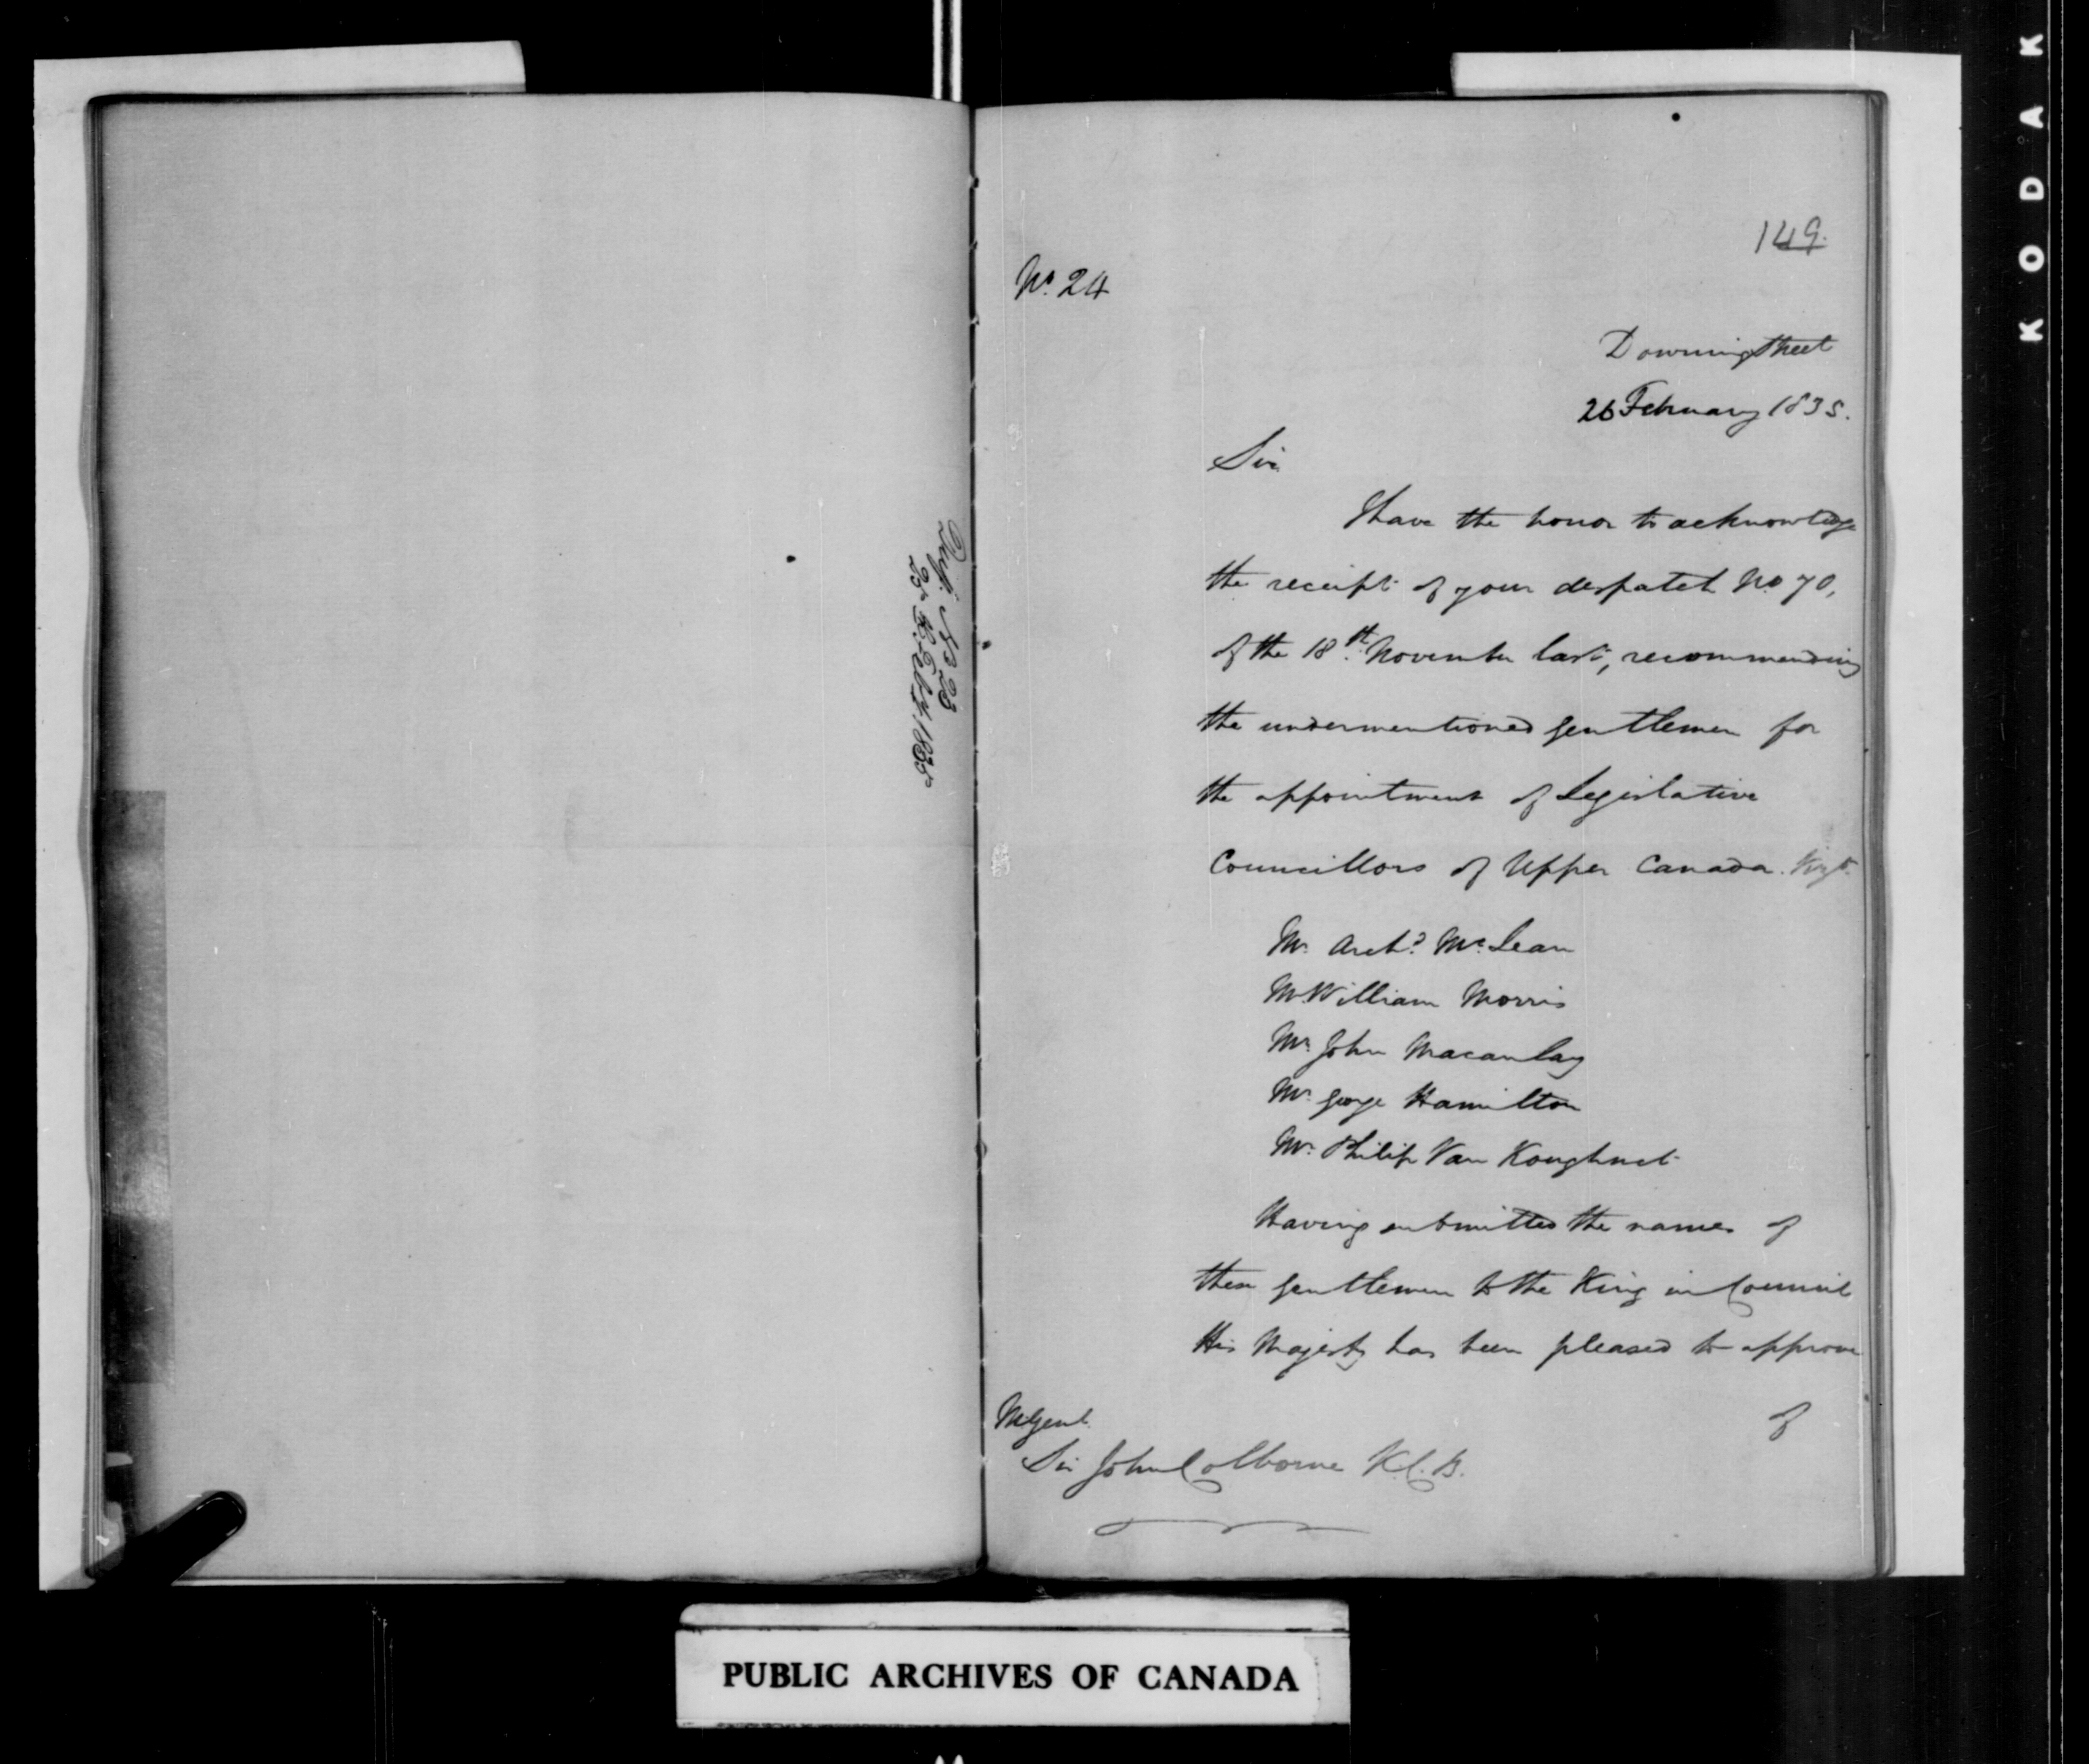 Desp. No 23
25th Feby 1835
149.
No. 24
Downing Street
26 February 1835.
Sir
I have the honor to acknowledge
the receipt of your despatch No 70,
of the 18th November last, recommending
the undermentioned gentlemen for
the appointment of Legislative
Councillors of Upper Canada.
Mr. Archd. McLean
Mr William Morris
Mr John Macaulay
Mr George Hamilton
Mr Philip Van Koughnet
Having submitted the names of
these gentlemen to the King in Council
His Majesty has been pleased to approve
of
M. Genl.
Sir John Colborne K.C.B.
PUBLIC ARCHIVES OF CANADA
KODAK